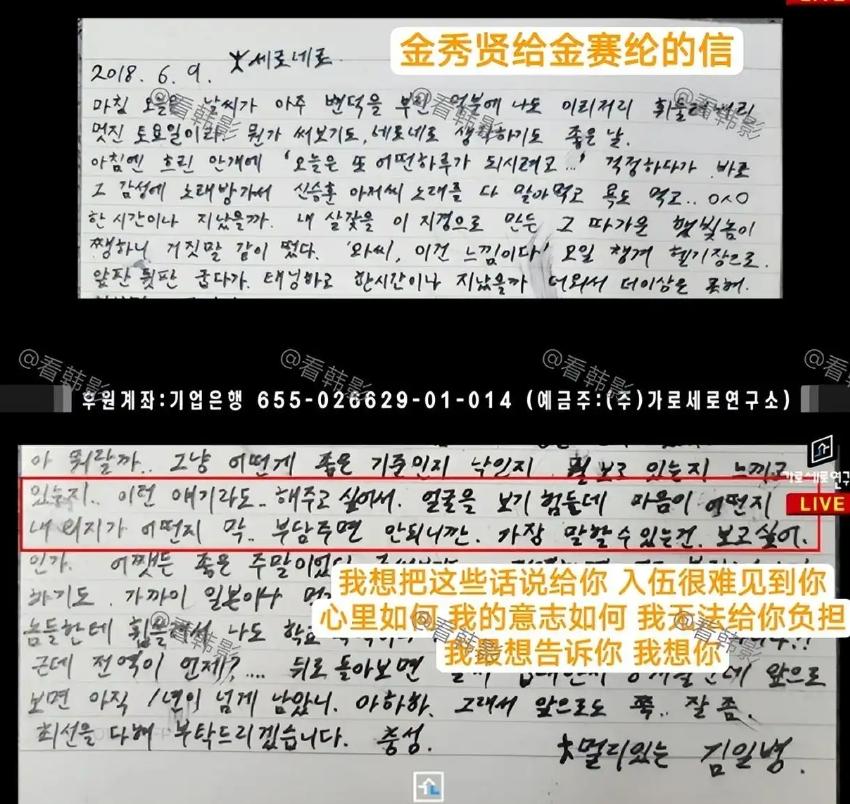 LIVE
金秀贤给金赛纶的信
2018. 6. 9. ★세로네로.
마침 오늘은 날씨가 아주 변덕을 부린 덕분에 나도 이리저리
멋진 토요일이라. 뭔가 써보기도, 세로네로 생각하기도 좋은 날.
아침엔 흐린 안개에 '오늘은 또 어떤하루가 되시려고...' 걱정하다가 바로
그 감성에 노래방가서 신승훈 아저씨 노래를 다 말아먹고 욕도 먹고.. 0^0
한시간이나 지났을까. 내 살갗을 이 지경으로 만든 그 따가운 햇빛놈이
쨍하니 거짓말 같이 떴다. '와씨, 이건 느낌이다' 요일 챙겨 헬기장으로.
앞판 뒷판 굽다가. 태닝하고 한시간이나 지났을까 더워서 더이상은 못해.
@看韩影 @看韩影
@看韩影 @看韩影 @看韩影 @看韩影
후원계좌:기업은행 655-026629-01-014 (예금주:(주)가로세로연구소)
아 뭐랄까.. 그냥 어떻게 좋은 기준인지 낙인지 뭘 보고 있는지 느끼고
가로세로연구
있는지.. 이런 얘기라도.. 해주고 싶어서. 얼굴을 보기 힘든데 마음이 어떤지
LIVE
내 의지가 어떤지 막.. 부담주면 안되니깐. 가장 말할수있는건. 보고싶어.
인가. 어쨌든 좋은 주말이었다.
我想把这些话说给你 入伍很难见到你
하기도. 가까이 일본이나
心里如何 我的意志如何 我无法给你负担
놈들한테 휩쓸려서 나도
我最想告诉你 我想你
근데 전역이 언제?.... 뒤로 돌아보면 앞으로
보면 아직 1년이 넘게 남았니. 아하하. 그래서 앞으로도 쭉.. 잘 좀.
최선을 다해 부탁드리겠습니다. 충성.
★멀리있는 김일병.
@看韩影 @看韩影
@看韩影 @看韩影